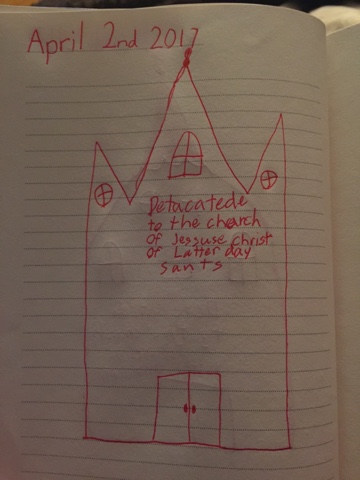 April 2nd 2017
Detacatede
to the chearch
Of Jessuse christ
Of Latter day
Sants